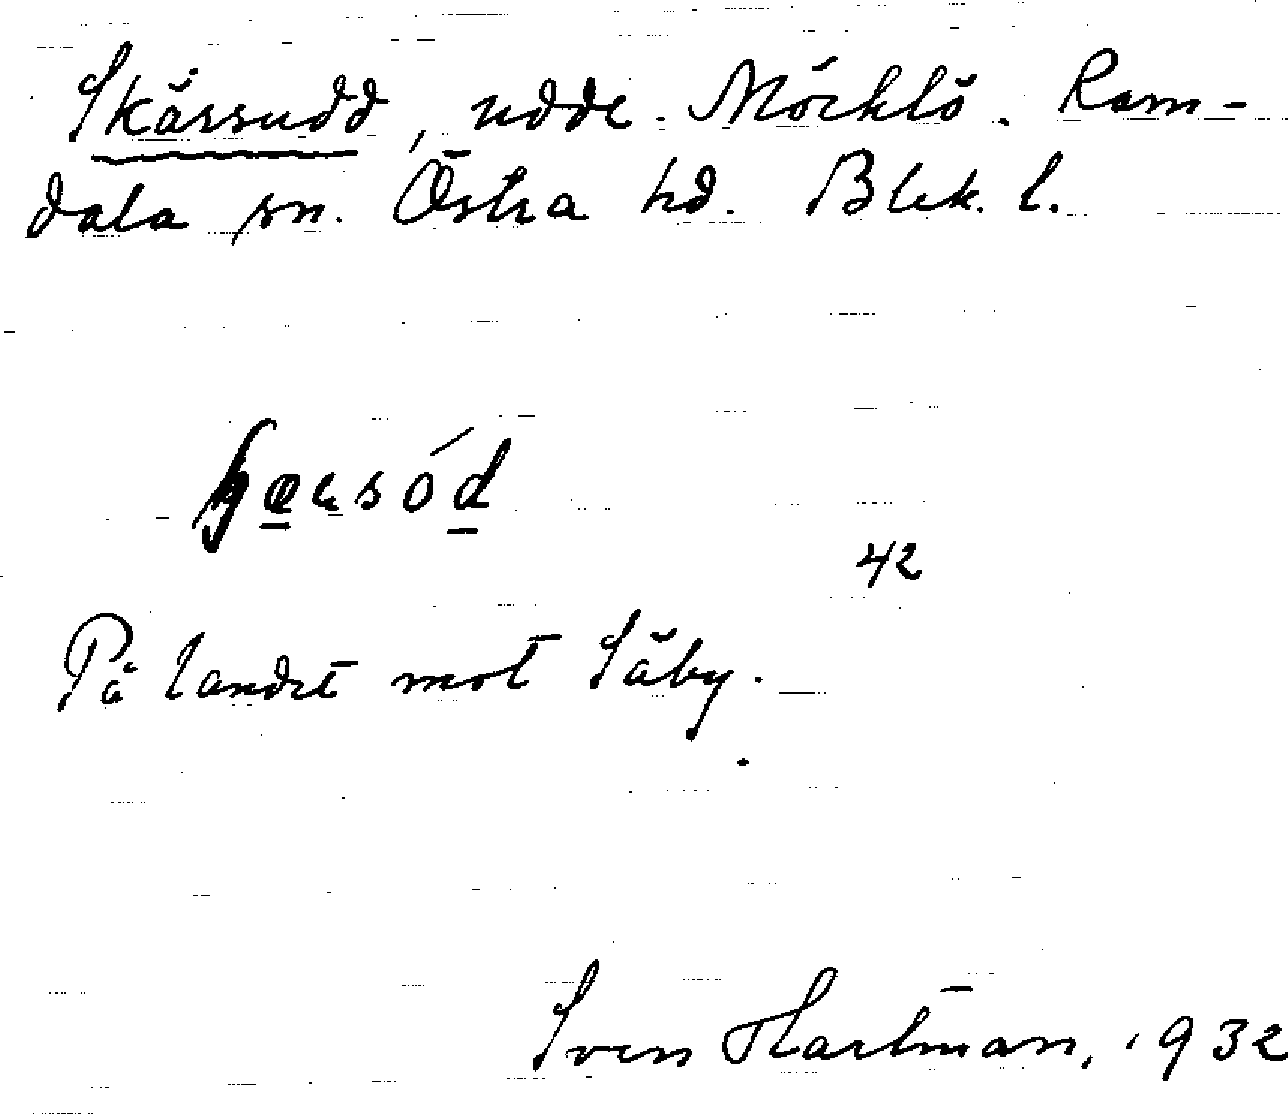 Skärsudd, udde. Möcklö. Ram-
dala sn. Östra hd. Blek. l.
42
På landet mot Säby.
Sven Hartman, 1932